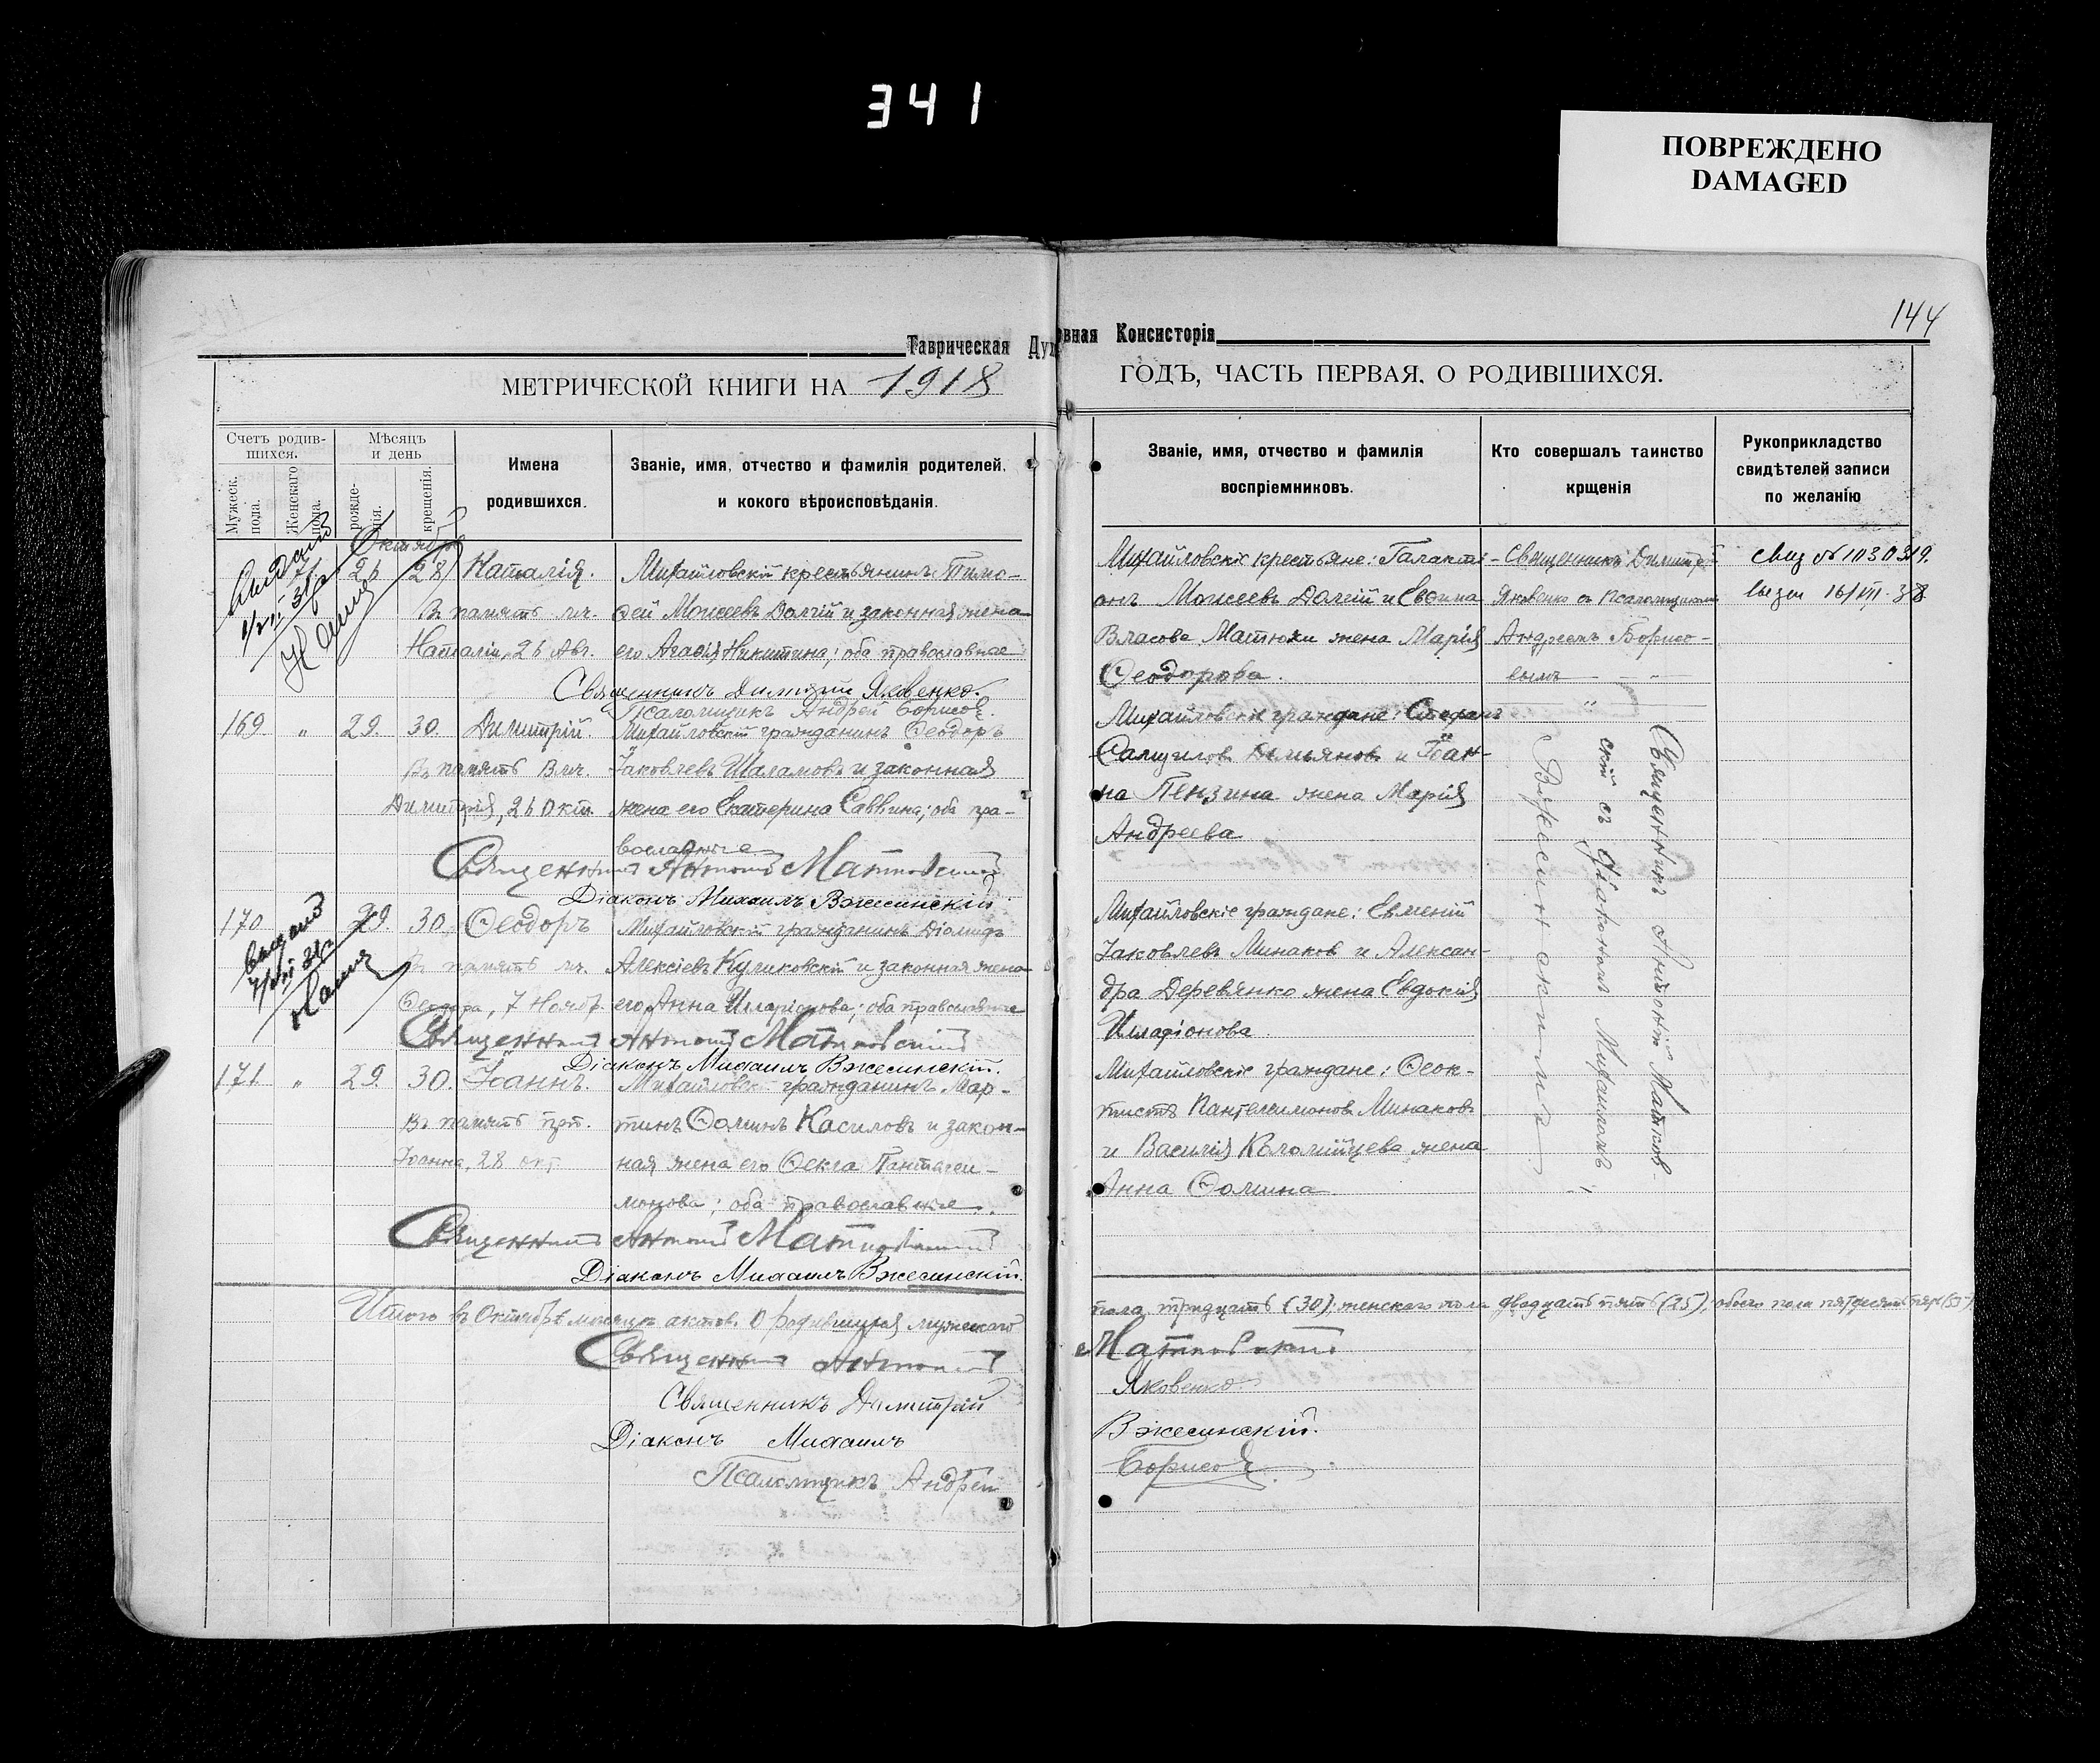 341
ПОВРЕЖДЕНО
DAMAGED
144
Таврическая Духовная Консисторія
МЕТРИЧЕСКОЙ КНИГИ НА 1918
ГОДЪ, ЧАСТЬ ПЕРВАЯ. О РОДИВШИХСЯ.
Счетъ родив-
шихся.
Мужеск.
пола.
Женскаго
пола.
Мѣсяцъ
и день
рожде-
нія.
крещенія.
Имена
родившихся.
Званіе, имя, отчество и фамилія родителей,
и кокого вѣроисповѣданія.
Званіе, имя, отчество и фамилія
воспріемниковъ.
Кто совершалъ таинство
крщенія
Рукоприкладство
свидѣтелей записи
по желанію
Октябрь
26 28 Наталія. Михайловскій крестьянинъ Тимо-
Въ память мч. ѳей Моисеевъ Долгій и законная жена
Наталіи, 26 Авг. его Агаѳія Никитина; оба православные
Священникъ Димитрій Яковенко.
Псаломщикъ Андрей Борисовъ.
Михайловскіе крестьяне: Галакті-
онъ Моисеевъ Долгій и Евѳима
Власова Матюхи жена Марія
Ѳеодорова.
Священникъ Димитрій
Яковенко съ Псаломщикомъ
Андреемъ Борисо-
вымъ
169 " 29. 30. Димитрій. Михайловскій гражданинъ Ѳеодоръ
Въ память Вмч. Іаковлевъ Шаламовъ и законная
Димитрія, 26 Окт. жена его Екатерина Саввина; оба пра-
вославные
Священникъ Антоній Матковскій
Діаконъ Михаилъ Вжесинскій
Михайловскіе граждане: Стефанъ
Демьяновъ и Іоан-
на Пензина жена Марія
Андреева
Священникъ Антоній Матков-
скій съ Діакономъ Михаиломъ
Вжесинскимъ
170 29. 30. Ѳеодоръ Михайловскій гражданинъ Діомидъ
Въ память мч. Алексіевъ Куликовскій и законная жена
Ѳеодора, 7 Нояб. его Анна Иларіонова; оба православные
Священникъ Антоній Матковскій
Діаконъ Михаилъ Вжесинскій.
Михайловскіе граждане: Евменій
Іаковлевъ Минаковъ и Алексан-
дра Деревянко жена Евдокія
Иларіонова.
171 " 29. 30. Іоаннъ. Михайловскій гражданинъ Мар-
Въ память прп. тинъ Ѳоминъ Касиловъ и закон-
Іоанна, 28 окт. ная жена его Ѳекла Пантелеи-
монова; оба православные.
Священникъ Антоній Матковскій
Діаконъ Михаилъ Вжесинскій.
Михайловскіе граждане: Ѳеок-
тистъ Пантелеимоновъ Минаковъ
и Василія Коломійцева жена
Анна Ѳомина.
Итого въ Октябрѣ мѣсяцѣ актовъ о родившихся мужескаго
пола тридцать (30), женскаго пола двадцать пять (25), обоего пола пятдесятъ пять (55)
Священникъ Антоній Матковскій
Священникъ Димитрій Яковенко
Діаконъ Михаилъ Вжесинскій.
Псаломщикъ Андрей Борисовъ.